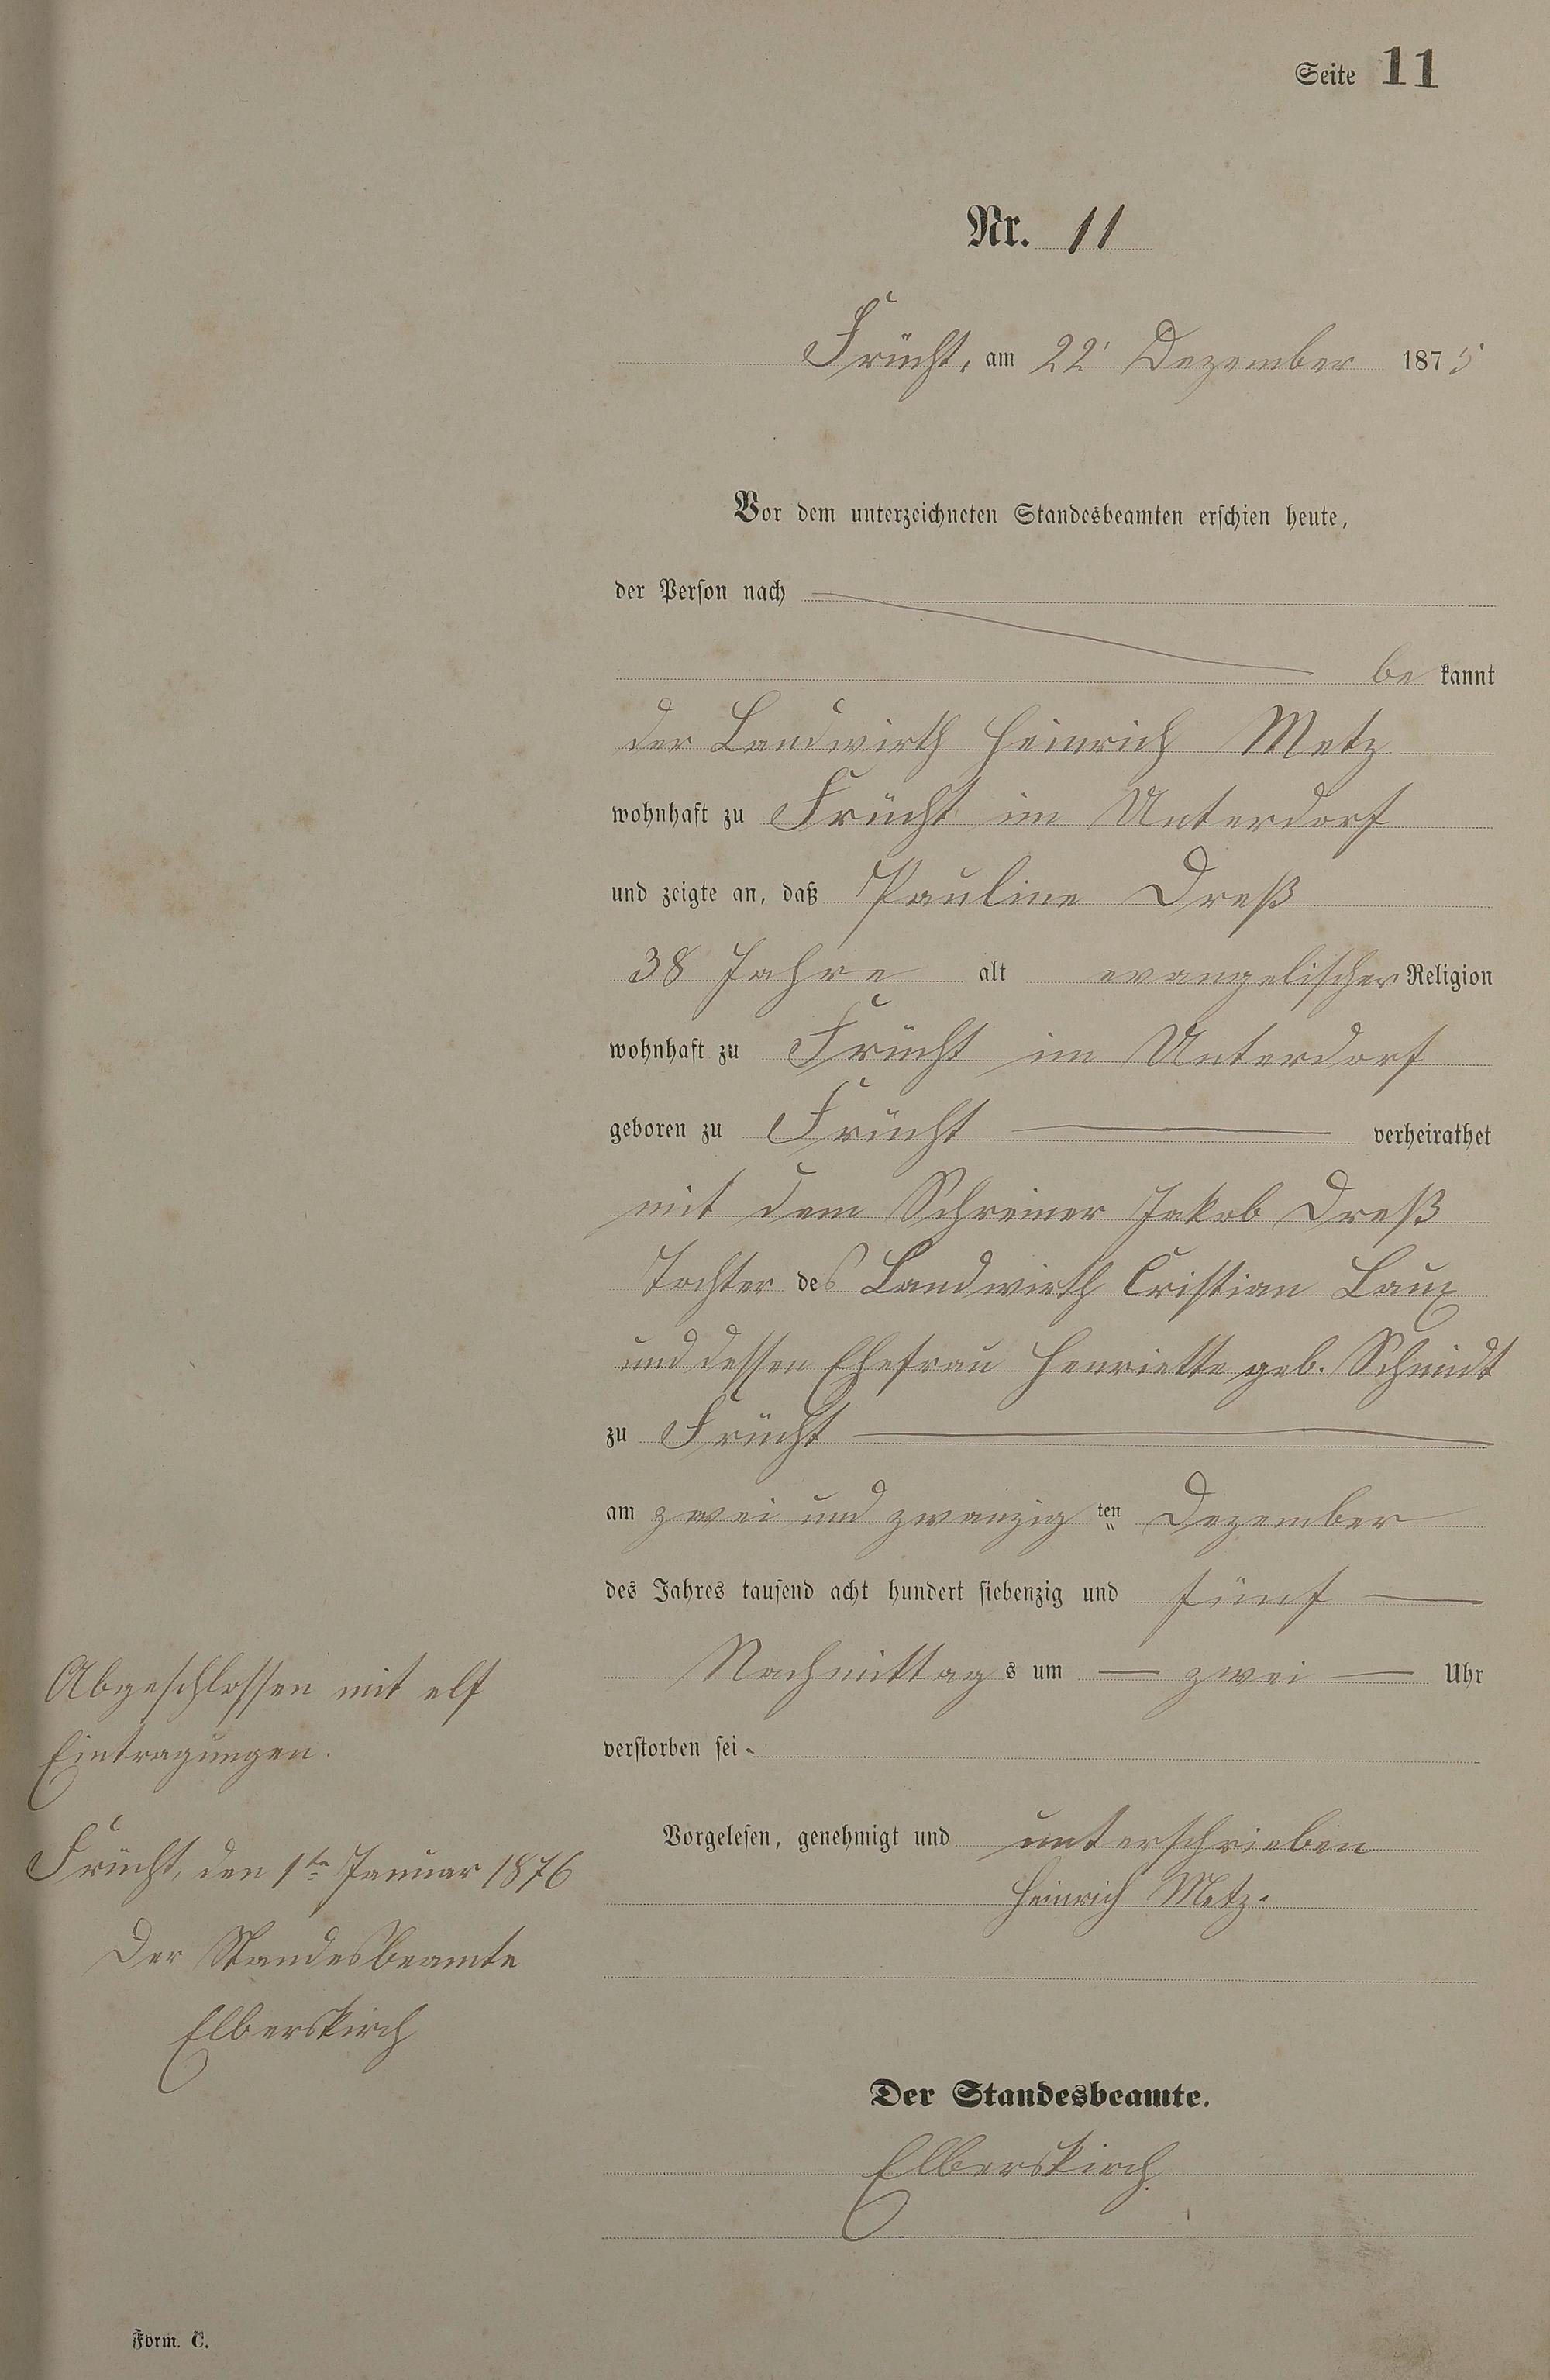 Seite 11
Nr. 11
Frücht, am 22ᵗ Dezember 1875
Vor dem unterzeichneten Standesbeamten erschien heute,
der Person nach
bekannt
der Landwirth Heinrich Metz
wohnhaft zu Frücht im Unterdorf
und zeigte an, daß Pauline Dreß
38 Jahre alt evangelischer Religion
wohnhaft zu Frücht im Unterdorf
geboren zu Frücht verheirathet
mit dem Schreiner Jakob Dreß
Tochter des Landwirth Cristian Laux
und dessen Ehefrau Henriette geb. Schmidt
zu Frücht
am zwei und zwanzigten Dezember
des Jahres tausend acht hundert siebenzig und fünf
Nachmittags um zwei Uhr
verstorben sei.
Vorgelesen, genehmigt und unterschrieben
Heinrich Metz.
Der Standesbeamte.
Elberskirch
Abgeschlossen mit elf
Eintragungen.
Frücht, den 1ten Januar 1876
Der Standesbeamte
Elberskirch
Form. C.